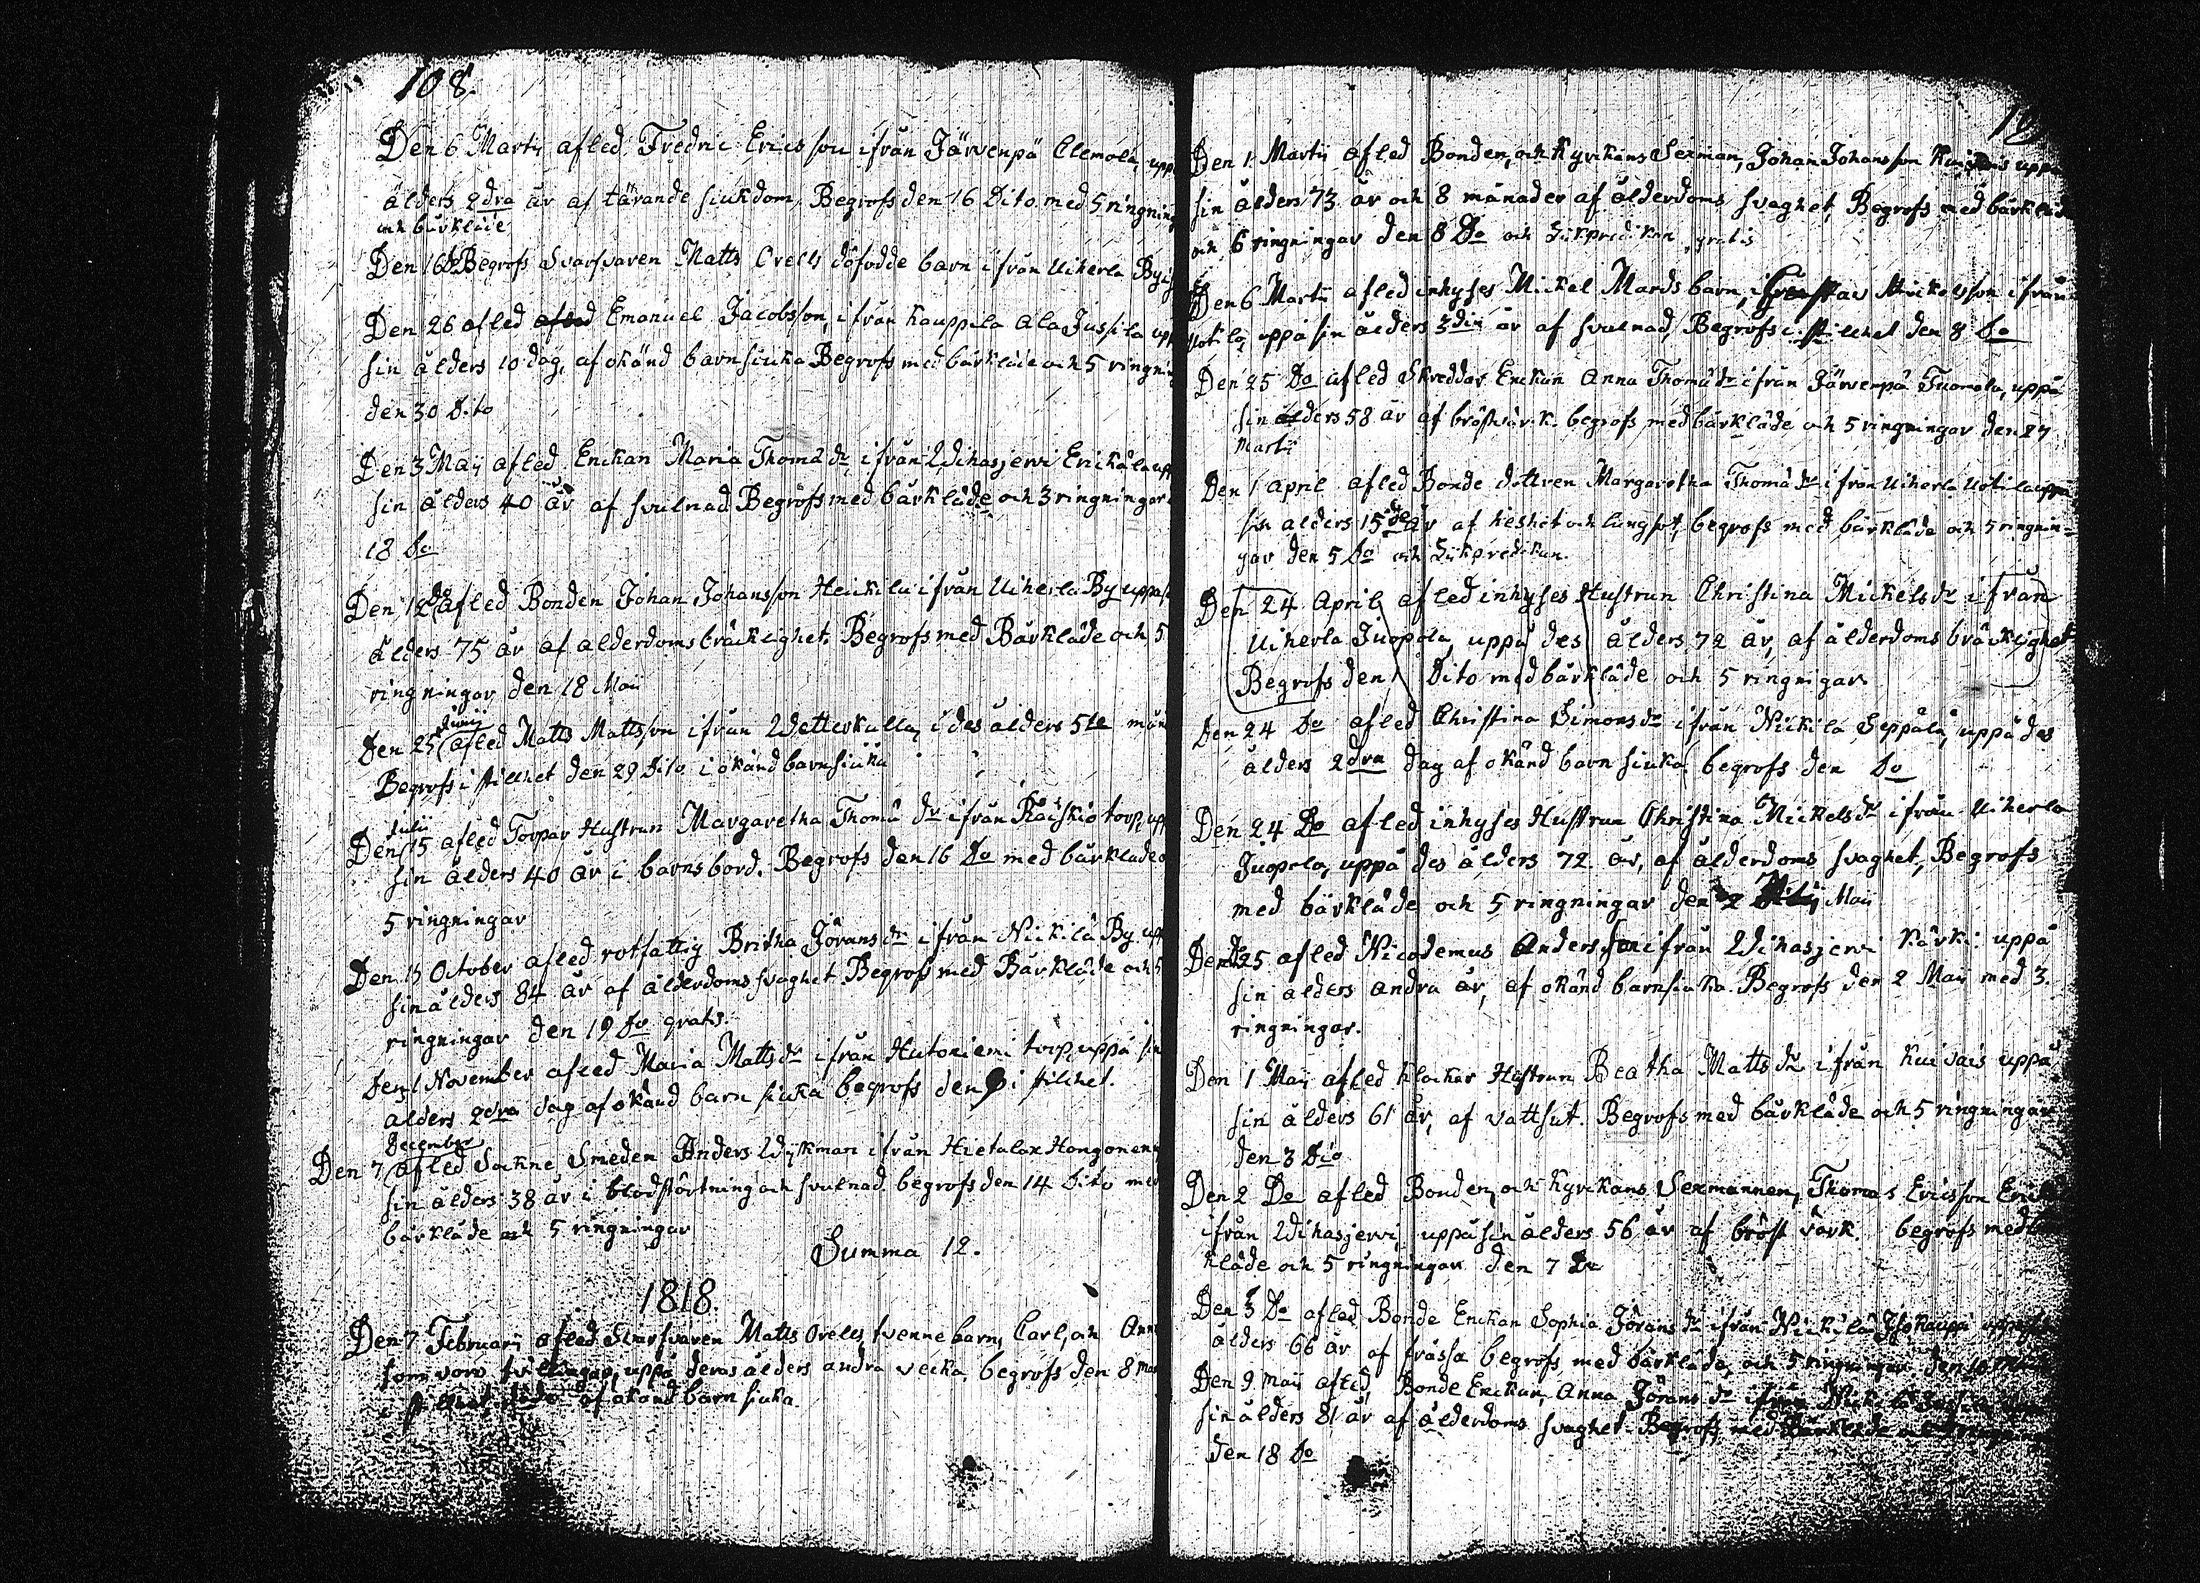 108.
Den 6 Martii afled Fredric Ericsson ifrån Järvenpä Clemola, upp
ålders 2dra år af tärande siukdom, Begrofs den 16 Dito med 5 ringning
och bårkläde
Den 16 Do Begrofs Svarfvaren Matts Orells döfödde barn ifrån Uiherla By
Den 26 afled afled Emanuel Jacobsson, ifrån Kauppila Ala Jussila upp
sin ålders 10 dag, af okänd barnsiuka Begrofs med bårkläde och 5 ringning
den 30 Dito
Den 3 Maij afled Enckan Maria Thoma dr ifrån Wihasjervi Erickäla upp
sin ålders 40 år af svulnad Begrofs med bårkläde och 3 ringningar
18 Do
Den 12 Do afled Bonden Johan Johansson Heickila ifrån Uiherla By uppå
ålders 75 år af alderdoms bräcklighet. Begrofs med Bårkläde och 5
ringningar den 18 Maij
Junij
Den 25 afled Matts Mattsson ifrån Wetterkulla, i des ålders 5te mån
Begrofs i stillhet den 29 Dito i okänd barnsiuka
Julii
Den 15 afled Torpar Hustrun Margaretha Thoma dr ifrån Räiskiö torp, upp
sin ålders 40 år i barnsbörd. Begrofs den 16 Do med bårkläde
5 ringningar
Den 15 October afled rotfattig Britha Jöransdr ifrån Nickilä By upp
sin ålders 84 år af ålderdoms svaghet Begrofs med Bårkläde och 5
ringningar den 19 Do gratis.
Den 1 November afled Maria Mattsdr ifrån Hutoniemi torp, uppå sin
ålders 2dra dag af okänd barn siuka begrofs den i stillhet.
December
Den 7 afled Sockne Smeden Anders Wykman ifrån Hietalax Hongonen
sin ålders 38 år i blodstörtning och svulnad begrofs den 14 Dito med
bårkläde och 5 ringningar
Summa 12.
1818.
Den 7 Februarii afled Svarfvaren Matts Orells, tvenne barn, Carl, och Anna
som voro tvillingar, uppå deras ålders andra vecka, begrofs den 8 Mar
i stillhet af okänd barn siuka.
Den 1 Martii afled Bonden, och Kyrkans Sexman, Johan Johansson uppå
sin ålders 73 år och 8 månader af ålderdoms svaghet, Begrofs med bårkläde
och 6 ringningar den 8 Do och Likpredikan gratis
Den 6 Martii afled inhyses Mickel Mards barn, Gustav Mickelsson ifrån
Uotila, uppå sin ålders 3die år af svulnad, Begrofs i stillhet den 8 Do
Den 25 Do afled Skreddar Enckan Anna Thomä dr ifrån Järvenpä Tuomola, uppå
sin ålders 58 år af bröstvärk. begrofs med bårkläde och 5 ringningar den 27
Martii
Den 1 April afled Bonde dottren Margaretha Thomä dr ifrån Uiherla Uotila uppå
sin ålders 15de år af heshet och lungsot, begrofs med bårkläde och 5 ringnin=
gar den 5 Do och Likpredikan.
Den 24 April afled inhyses Hustrun Christina Mickelsdr ifrån
Uiherla Juopola, uppå des ålders 72 år, af ålderdoms bräcklighet
Begrofs den Dito med bårkläde och 5 ringnigar.
Den 24 Do afled Christina Simonsdr ifrån Nickilä Seppälä, uppå des
ålders 2dra dag af okänd barn siuka. begrofs den Do
Den 24 Do afled inhyses Hustrun Christina Mickelsdr ifrån Uiherla
Juopola, uppå des ålders 72 år, af ålderdoms svaghet, Begrofs
med bårkläde och 5 ringningar den 2 Maij
Den 25 afled Nicodemus Andersson ifrån Wihasjervi Kärki uppå
sin ålders andra år, af okänd barnsiuka. Begrofs den 2 Maij med 3.
ringningar.
Den 1 Maij afled Klockar Hustrun Beatha Mattsdr ifrån Kuivais uppå
sin ålders 61 år, af vattsut. Begrofs med bårkläde och 5 ringningar
den 3 Dio
Den 2 Do afled Bonden, och Kyrkans Sexmannen, Thomas Ericsson
ifrån Wihasjervi uppå sin ålders 56 år af bröst värk. begrofs med
kläde och 5 ringningar den 7 Do
Den 3 Do afled Bonde Enckan Sophia Jöransdr ifrån Nickilä Isokauppi uppå
ålders 66 år af frässa begrofs med bårkläde, och 5 ringningar den 10
Den 9 Maij afled Bonde Enckan, Anna Jöransdr ifrån
sin ålders 81 år af ålderdoms svaghet. Begrofs med Bårkläde
den 18 Do